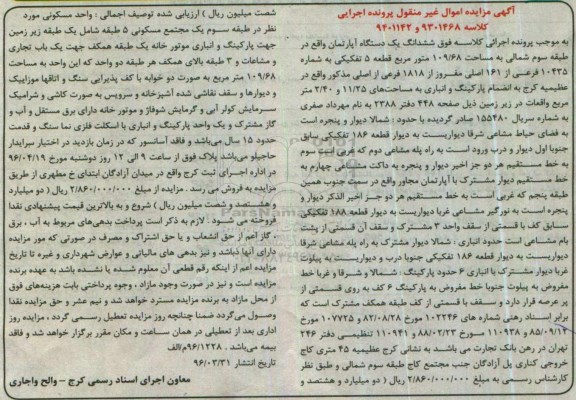 آگهی مزایده اموال غیر منقول پرونده اجرایی
کلاسه ۹۳۰۱۴۶۸ و ۹۴۰۱۱۴۲
به موجب پرونده اجرائی کلاسه فوق ششدانگ یک دستگاه آپارتمان واقع در
طبقه سوم شمالی به مساحت ۱۰۹/۶۸ متر مربع قطعه ۵ تفکیکی به شماره
۱۰۴۳۵ فرعی از ۱۶۱ اصلی مفروز از ۱۸۱۸ فرعی از اصلی مذکور واقع در
عظیمیه کرج به انضمام پارکینگ و انباری به مساحت‌های ۱۱/۲۵ و ۲/۴۰ متر
مربع واقعات در زیر زمین ذیل صفحه ۴۴۸ دفتر ۲۳۸۸ به نام مهرداد صفری
به شماره سریال ۱۵۵۴۸۰ صادر گردیده با حدود : شمالا دیوار و پنجره است
به فضای حیاط مشاعی شرقا دیواریست به دیوار قطعه ۱۸۶ تفکیکی سابق
جنوبا اول دیوار و درب ورود است به راه پله مشاعی دوم که غربی است سوم
به خط مستقیم هر دو جز اخیر دیوار و پنجره به داکت مشاعی چهارم به
خط مستقیم دیوار مشترک با آپارتمان مجاور واقع در سمت جنوب همین
طبقه پنجم که غربی است به خط مستقیم هر دو جز اخیر الذکر دیوار و
پنجره است به نورگیر مشاعی غربا دیواریست به دیوار قطعه ۱۸۸ تفکیکی
سابق کف با قسمتی از سقف واحد ۳ مشترک و سقف آن قسمتی از پشت
بام مشاعی است حدود انباری : شمالا دیوار مشترک به راه پله مشاعی شرقا
دیواریست به دیوار قطعه ۱۸۶ تفکیکی جنوبا درب و دیواریست به پیلوت
غربا دیوار مشترک با انباری ۶ حدود پارکینگ : شمالا و شرقا و غربا خط
مفروض به پیلوت جنوبا خط مفروض به پارکینگ ۶ کف به روی قسمتی از
پر عرصه قرار دارد و سقف با قسمتی از کف طبقه همکف مشترک است که
برابر اسناد رهنی شماره های ۱۰۲۲۴۶ مورخ ۸۲/۰۸/۲۸ و ۱۰۷۷۲۵ مورخ
۸۵/۰۹/۱۲ و ۱۱۰۹۳۸ مورخ ۸۸/۰۲/۲۳ و ۱۱۰۹۴۱ تنظیمی دفتر ۲۴۶
تهران در رهن بانک تجارت می باشد به نشانی کرج عظیمیه ۴۵ متری کاج
خروجی کناری پل آزادگان جنب مجتمع کاج طبقه سوم شمالی و طبق نظر
کارشناس رسمی به مبلغ ۲/۸۶۰/۰۰۰/۰۰۰ ریال ( دو میلیارد و هشتصد و
شصت میلیون ریال ) ارزیابی شده توصیف اجمالی : واحد مسکونی مورد
نظر در طبقه سوم یک مجتمع مسکونی ۵ طبقه شامل یک طبقه زیر زمین
جهت پارکینگ و انباری موتور خانه یک طبقه همکف جهت یک باب تجاری
و مشاعات و ۳ طبقه بالای همکف هر طبقه دو واحد که این واحد به مساحت
۱۰۹/۶۸ متر مربع به صورت دو خوابه با کف پذیرایی سنگ و اتاقها موزاییک
و دیوارها و سقف نقاشی شده آشپزخانه و سرویس به صورت کاشی و سرامیک
سرمایش کولر آبی و گرمایش شوفاژ و موتور خانه دارای برق مستقل و آب و
گاز مشترک و یک واحد پارکینگ و انباری با اسکلت فلزی نما سنگ و قدمت
حدود ۱۵ سال می‌باشد و فاقد آسانسور که در زمان بازدید در اختیار سرایدار
حاجیلو می‌باشد پلاک فوق از ساعت ۹ الی ۱۲ روز دوشنبه مورخ ۹۶/۰۴/۱۹
در اداره اجرای ثبت کرج واقع در میدان آزادگان ابتدای خ مطهری از طریق
مزایده به فروش می رسد . مزایده از مبلغ ۲/۸۶۰/۰۰۰/۰۰۰ ریال ( دو میلیارد
و هشتصد و شصت میلیون ریال ) شروع و به بالاترین قیمت پیشنهادی نقدا
فروخته می شود : لازم به ذکر است پرداخت بدهی‌های مربوط به آب ، برق
، گاز اعم از حق انشعاب و یا حق اشتراک و مصرف در صورتی که مورد مزایده
دارای آنها باشد و نیز بدهی های مالیاتی و عوارض شهرداری و غیره تا تاریخ
مزایده اعم از اینکه رقم قطعی آن معلوم شده یا نشده باشد به عهده برنده
مزایده است و نیز در صورت وجود مازاد ، وجوه پرداختی بابت هزینه‌های فوق
از محل مازاد به برنده مزایده مسترد خواهد شد و نیم عشر و حق مزایده نقدا
وصول می‌گردد ضمنا چنانچه روز مزایده تعطیل رسمی گردد ، مزایده روز
اداری بعد از تعطیلی در همان ساعت و مکان مقرر برگزار خواهد شد و فاقد
بیمه می‌باشد . ۹۶/۱۲۲۸/م/الف
تاریخ انتشار ۹۶/۰۳/۳۱
معاون اجرای اسناد رسمی کرج – والح واجاری